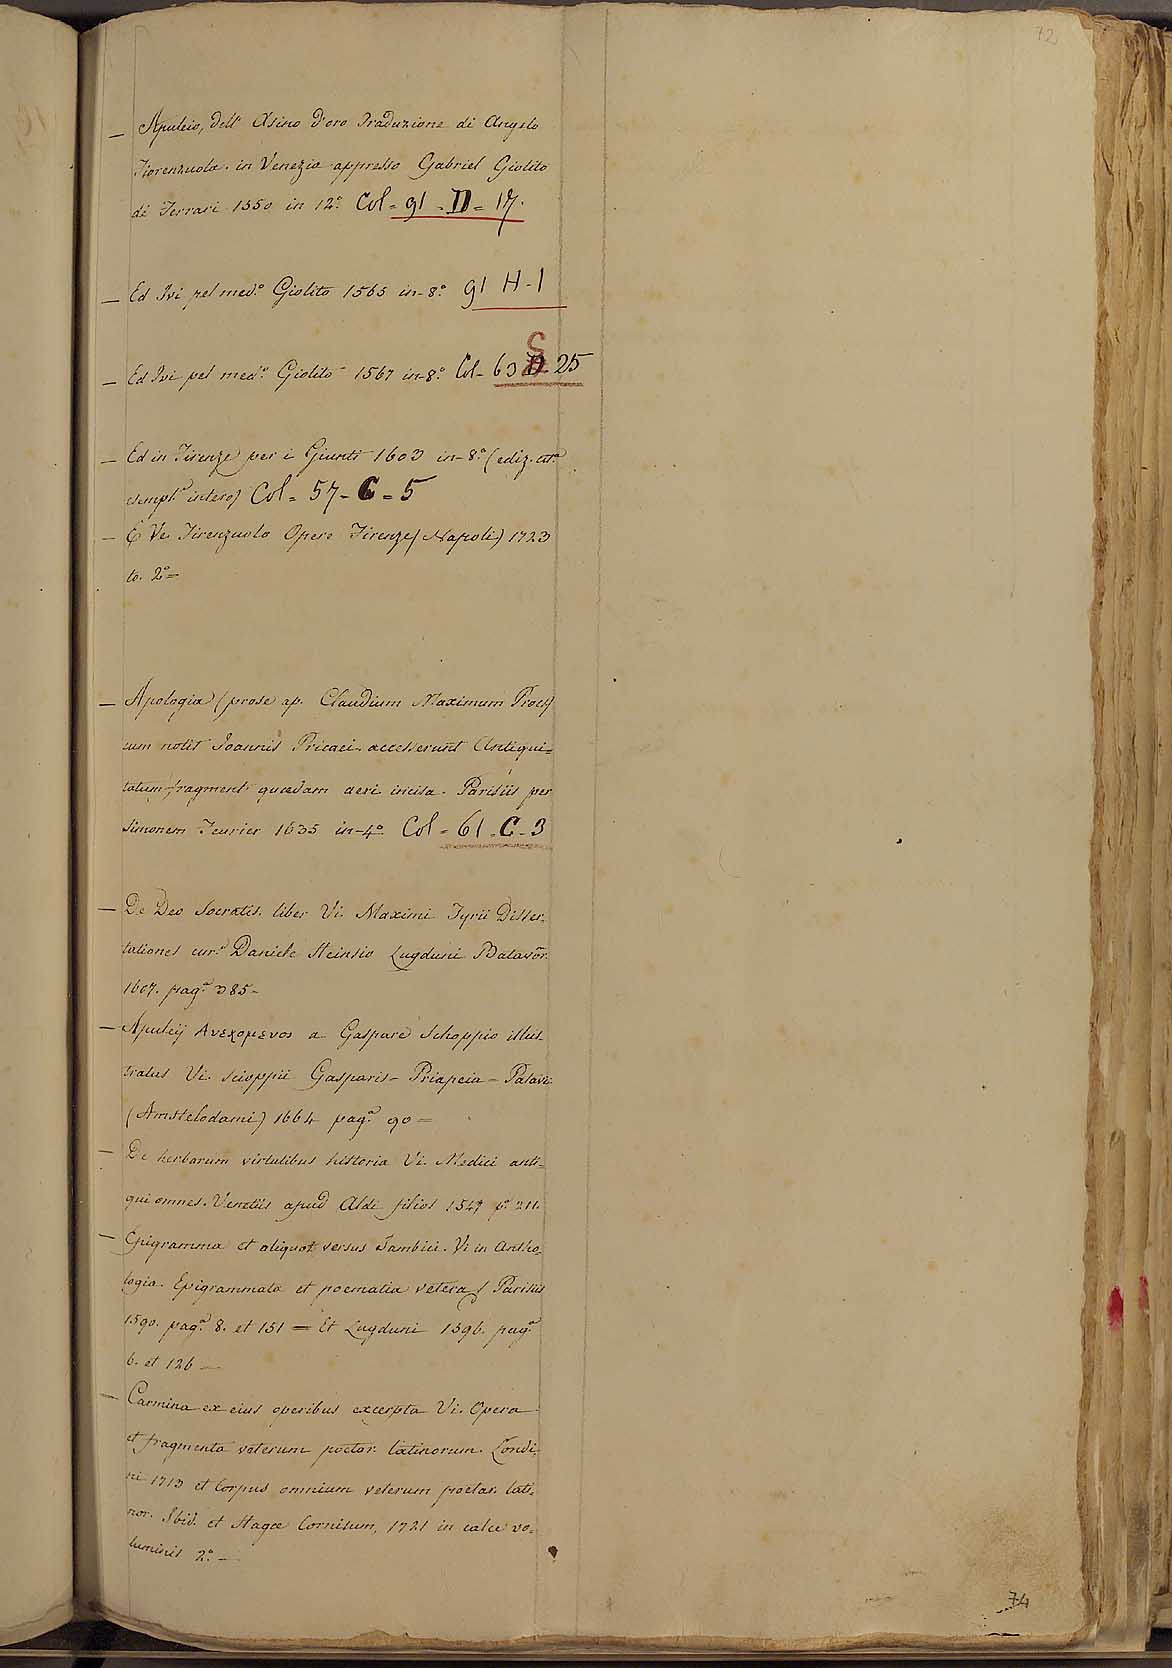 72
— Apuleio, dell' Asino d'oro Traduzione di Angelo
Fiorenzuola. in Venezia appresso Gabriel Giolito
di Ferrari 1550 in 12.° Col = 91 - D = 17.
— Ed Ivi pel med.° Giolito 1565 in-8.° 91 H - 1
— Ed Ivi pel med.° Giolito 1567 in-8.° Col - 63 S 25
— Ed in Firenze per i Giunti 1603 in-8.° (ediz. cit.a
esempl.e intero) Col = 57 - C = 5
— E Ve. Firenzuola Opere Firenze (Napoli) 1723
to. 2.° =
— Apologia (prose ap. Claudium Maximum Proc.)
cum notis Joannis Pricaei. accesserunt Antiqui=
tatum fragment. quaedam aeri incisa. Parisiis per
Simonem Fevrier 1635 in-4.° Col = 61 - C - 3
— De Deo Socratis. liber Vi. Maximi Tyrii Disser=
tationes cur.e Daniele Heinsio Lugduni Batavor.
1607. pag.a 385 -
— Apuleij Ανεχομενος a Gaspare Schoppio illus=
tratus Vi. Scioppii Gasparis - Priapeia - Patavii
(Amstelodami) 1664 pag.a 90 =
— De herbarum virtutibus historia Vi. Medici anti=
qui omnes. Venetiis apud Aldi filios 1547 p.a 211.
— Epigramma et aliquot versus Iambici. Vi in Antho=
logia. Epigrammata et poematia vetera / Parisiis
1590. pag.a 8. et 151 = Et Lugduni 1596. pag.a
6. et 126 —
— Carmina ex eius operibus excerpta Vi. Opera
et fragmenta veterum poetar. latinorum. Londi=
ni 1713 et Corpus omnium veterum poetar. lati=
nor. Ibid. et Hagae Comitum, 1721 in calce vo=
luminis 2.° —
74